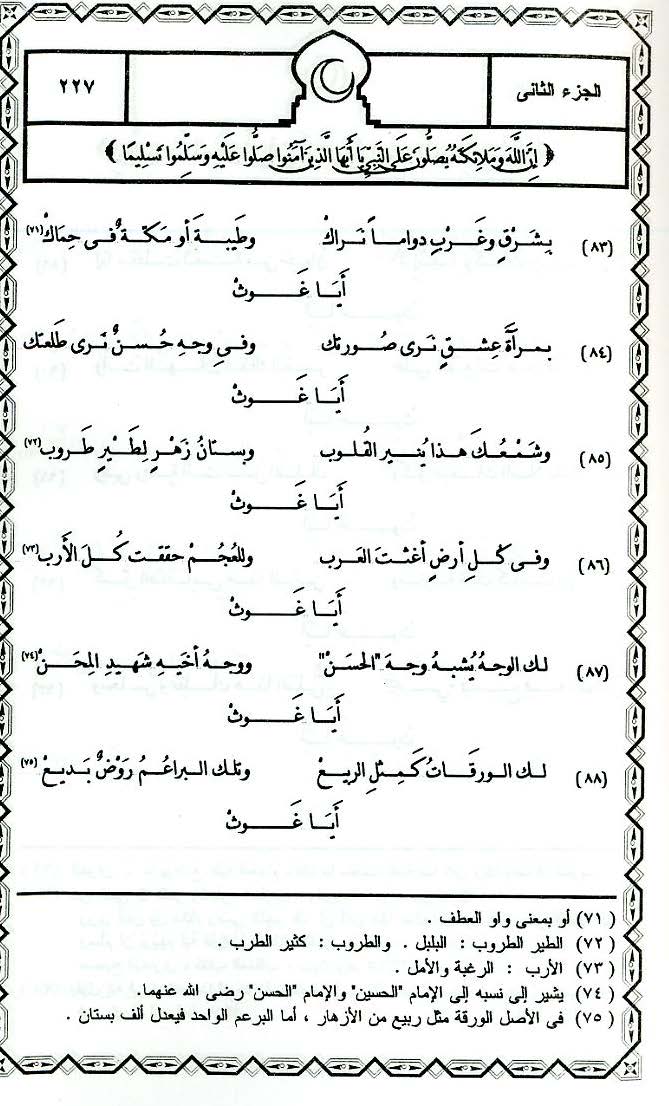 الجزء الثانى
٢٢٧
﴿ إِنَّ اللَّهَ وَمَلَائِكَتَهُ يُصَلُّونَ عَلَى النَّبِيِّ يَا أَيُّهَا الَّذِينَ آمَنُوا صَلُّوا عَلَيْهِ وَسَلِّمُوا تَسْلِيمًا ﴾
(٨٣) بِشَرْقٍ وغَرْبٍ دواماً نَراكْ وطَيبةَ أو مَكةٌ فى حِمَاكْ (٧١)
أَيَا غَوثْ
(٨٤) بمرآةِ عِشقٍ نَرى صُورتك وفي وجهِ حُسنٌ نَرى طَلعتك
أَيَا غَوثْ
(٨٥) وشَمْعُكَ هذا يُنير القُلوب وبستَانُ زَهْرٍ لِطَيْرٍ طَروب (٧٢)
أَيَا غَوثْ
(٨٦) وفى كُلِ أرضٍ أغثتَ العَرب وللعُجُمْ حققت كُلَ الأرب (٧٣)
أَيَا غَوثْ
(٨٧) لك الوجهُ يُشبهُ وجهَ "الحَسَنْ" ووجهُ أخيهِ شهيدِ المِحَنْ (٧٤)
أَيَا غَوثْ
(٨٨) لك الورقاتُ كَمِثلِ الربيعْ وتلك البراعُمُ رَوْضٌ بَديعْ (٧٥)
أَيَا غَوثْ
(٧١) أو بمعنى واو العطف .
(٧٢) الطير الطروب : البلبل . والطروب : كثير الطرب .
(٧٣) الأرب : الرغبة والأمل .
(٧٤) يشير إلى نسبه إلى الإمام "الحسين" والإمام "الحسن" رضى الله عنهما.
(٧٥) فى الأصل الورقة مثل ربيع من الأزهار ، أما البرعم الواحد فيعدل ألف بستان .